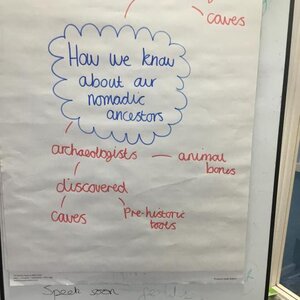 caves
How we know
about our
nomadic
ancestors
archaeologists — animal
bones
discovered
caves
Pre-historic
tools
Speek soon